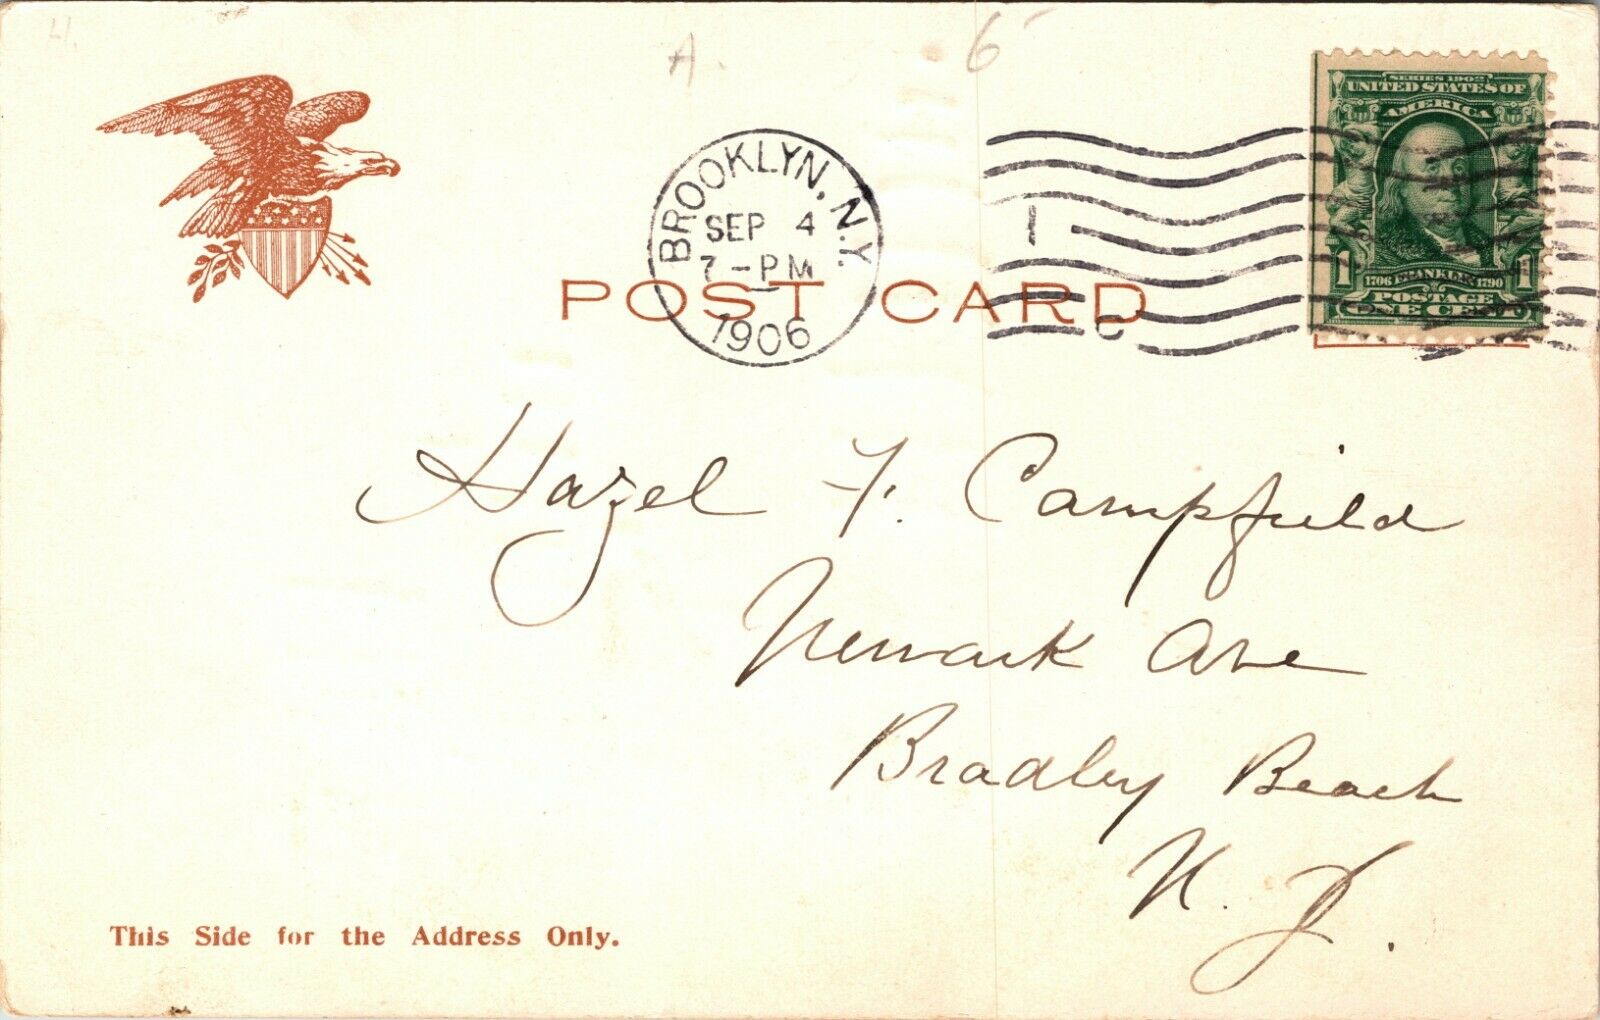 H.
A.
6
BROOKLYN, N.Y.
SEP 4
7-PM
1906
1 C
SERIES 1902
UNITED STATES OF
AMERICA
1 1
1706 FRANKLIN 1790
POSTAGE
ONE CENT
POST CARD
Hazel F. Campfield
Newark Ave
Bradley Beach
N. J.
This Side for the Address Only.